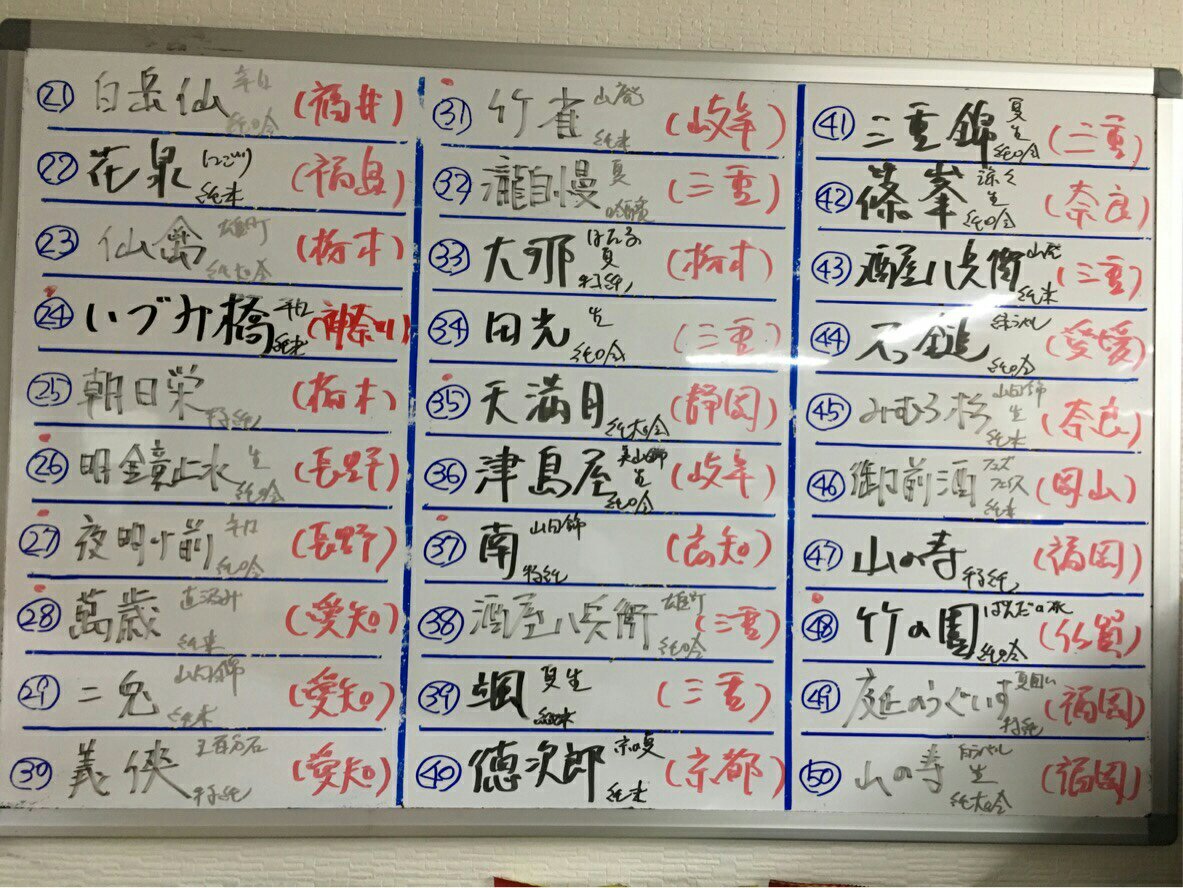 ㉑ 白岳仙 辛口 純吟 (福井)
㉒ 花泉 にごり 純米 (福島)
㉓ 仙禽 雄町 純大吟 (栃木)
㉔ いづみ橋 辛口 純米 (神奈川)
㉕ 朝日栄 特純 (栃木)
㉖ 明鏡止水 生 純吟 (長野)
㉗ 夜明け前 辛口 純吟 (長野)
㉘ 萬歳 直汲み 純米 (愛知)
㉙ 二兎 山田錦 純米 (愛知)
㉚ 義侠 五百万石 特純 (愛知)
㉛ 竹雀 山廃 純米 (岐阜)
㉜ 瀧自慢 夏 吟醸 (三重)
㉝ 大那 夏 特純 (栃木)
㉞ 田光 生 純吟 (三重)
㉟ 天満月 純大吟 (静岡)
㊱ 津島屋 美山錦 生 純吟 (岐阜)
㊲ 南 山田錦 特純 (高知)
㊳ 酒屋八兵衛 雄町 純吟 (三重)
㊴ 颯 夏生 純米 (三重)
㊵ 徳次郎 京の夏 純米 (京都)
㊶ 三重錦 夏生 純吟 (三重)
㊷ 篠峯 涼々 生 純吟 (奈良)
㊸ 酒屋八兵衛 山廃 純米 (三重)
㊹ 石鎚 純吟 (愛媛)
㊺ みむろ杉 山田錦 生 純米 (奈良)
㊻ 御前酒 フェイス 純米 (岡山)
㊼ 山の寿 特純 (福岡)
㊽ 竹の園 純吟 (佐賀)
㊾ 庭のうぐいす 夏囲い 特純 (福岡)
㊿ 山の寿 生 純大吟 (福岡)